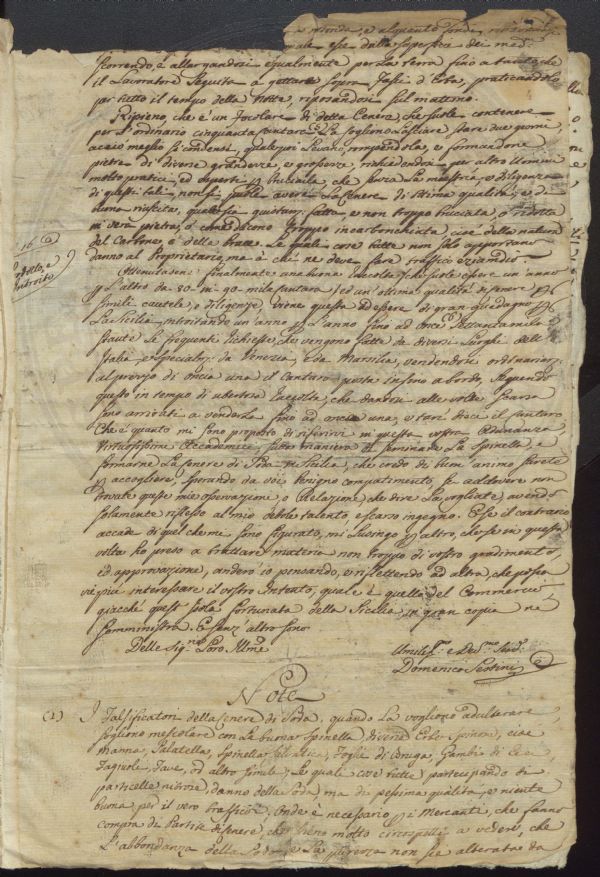 rotonda, e alquanto fonda,
male esce dalla superficie dei med.
scorrendo, e allargandosi egualmente per la terra sino a tanto che
il Lavoratore Seguita a gettare sopra Fasci d'Erba, praticandolo
per tutto il tempo della Notte, riposandosi sul matino.
Ripieno, che è un Focolare di detta Cenere, che suole contenere
per l'ordinario cinquanta cantara La sogliono lasciare stare due giorni,
acciò meglio si condensi, quale poi Levano, rompendola, e formandone
pietre di diverse grandezze, e grossezze, richiedendosi per altro Uomini
molto pratici, ed esperti p bruciarla, che senza La maestria, e diligenza
di questi tali, non si puole avere La Cenere di ottima qualità, e di
buona riuscita, quale sia fatta, e non troppo bruciata, o ridotta
in vera pietra, o troppo incarbonchiata, cioè della natura
del Carbone, e della brace. Le quali cose tutte non solo apportano
danno al Proprietario, ma è chi ne deve fare traffico eziandio.
16
Ottenutasene finalmente una buona raccolta (che suole essere un anno
p L'altro da 80 in 90 mila cantara) ed un'ottima qualità di cenere p
simili cautele, e diligenze, viene questa ad essere di gran guadagno p
La Sicilia, introitando un anno p L'anno sino ad Once settantamila
stante Le frequenti richieste, che vengono fatte da diversi Luoghi dell'
Italia, e specialm. da Venezia, e da Marsilia, vendendosi ordinariam.
al prezzo di oncia una il Cantaro posta infino a bordo, seguendo
questo in tempo di ubertosa raccolta, che dandosi alle volte scarsa
sono arrivati a venderla sino ad oncia una, e tarì dieci il cantaro
Che è quanto mi sono proposto di riferirvi in questa vostra Adunanza
Virtuosissimi Accademici sulla maniera di seminare La Spinella, e
formarne La Cenere di Soda in Sicilia, che credo di buon animo sarete
p accogliere, sperando da voi benigno compatimento, se addivere non
trovate queste mie osservazioni, o Relazione, che dire La vogliate, avendo
solamente riflesso al mio debole talento, e scarso ingegno. E se il contrario
accade di quel che me sono figurato, mi Lusingo p altro, che se in questa
volta ho preso a trattare materie non troppo di vostro gradimento,
ed approvazione, anderò io pensando, e riflettendo ad altra, che possa
vie più interessare il vostro Intento, quale è quello del Commercio
giacché quest'Isola fortunata della Sicilia in gran copia ne
somministra. E senz'altro sono
Delle Sig.rie Loro Ill.me
Domenico Sestini
Note
(1) I Falsificatori della Cenere di Soda, quando La vogliono adulterare
sogliono mescolare con La buona Spinella diverse Erbe spinose, cioè
Salatella, Spinella Silvatica, Foglie di Gambi di Ceci
Fagiuole, Fave, ed altro simile, Le quali cose tutte partecipando di
particelle nitrose, danno della Soda, ma di pessima qualità, e niente
buona per il vero traffico. Onde è necessario p i Mercanti, che fanno
compra di Partite di cenere, che sieno molto circospetti a vedere, che
L'abbondanza della Soda e La purezza non sie alterata da